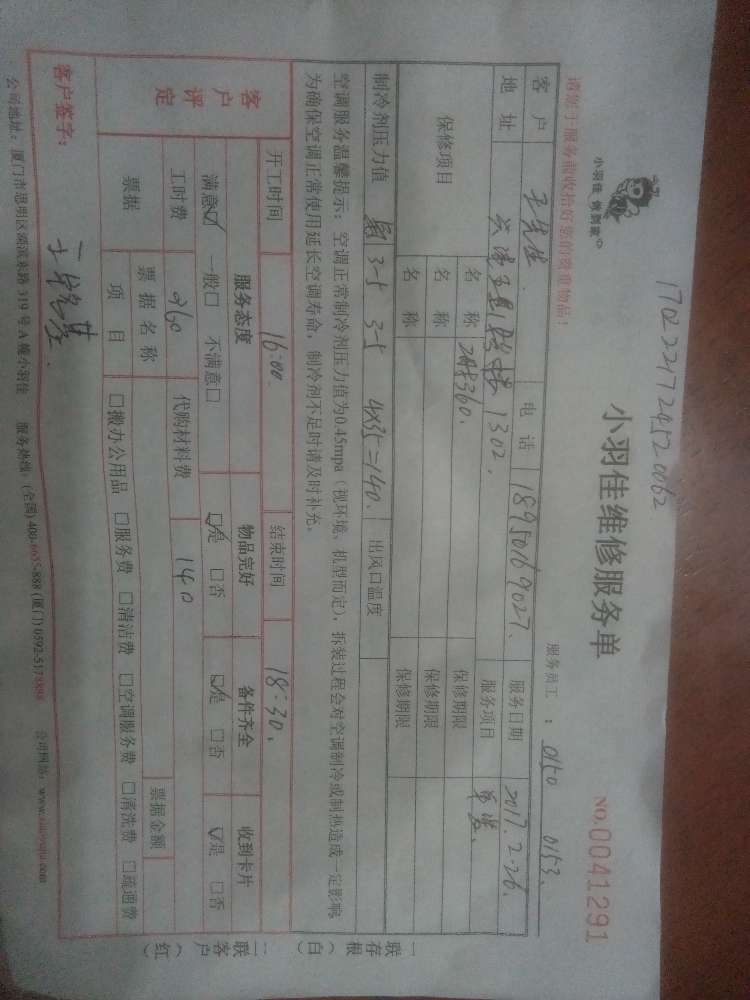 1702221724520062
小羽佳 修到家
小羽佳维修服务单
服务员工：0150 0153
NO.0041291
请您于服务前收拾好您的贵重物品！
客户 电话 18950169027 服务日期 2017.2.26
地址 1302 服务项目 单装
保修项目 名称 保修期限
名称 保修期限
名称 保修期限
制冷剂压力值 3-5 3-5 4×35=140 出风口温度
空调服务温馨提示：空调正常制冷剂压力值为0.45mpa（视环境、机型而定），拆装过程会对空调制冷或制热造成一定影响，
为确保空调正常使用延长空调寿命，制冷剂不足时请及时补充。
开工时间 16:00 结束时间 18:30
客户评定 服务态度 物品完好 备件齐全 收到卡片
满意☑ 一般□ 不满意□ ☑是 □否 ☑是 □否 ☑是 □否
工时费 260 代购材料费 140
票据 票据名称 票据金额
项目 □搬办公用品 □服务费 □清洁费 □空调服务费 □清洗费 □疏通费
客户签字：
公司地址：厦门市思明区 319号A幢小羽佳 服务热线：(全国) 400- -888 (厦门) 0592-5178888 公司网站：
一联存根（白）
二联客户（红）